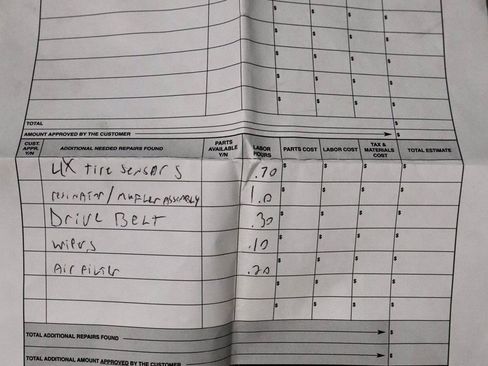 $ $ $ $
$ $ $ $
$ $ $ $
$ $ $ $
$ $ $ $
TOTAL $
AMOUNT APPROVED BY THE CUSTOMER $
CUST. APPR. Y/N ADDITIONAL NEEDED REPAIRS FOUND PARTS AVAILABLE Y/N LABOR HOURS PARTS COST LABOR COST TAX & MATERIALS COST TOTAL ESTIMATE
4X tire sensors .70 $ $ $ $
resinator/muffler assembly 1.0 $ $ $ $
Drive Belt .30 $ $ $ $
wipers .10 $ $ $ $
Air Filter .20 $ $ $ $
$ $ $ $
$ $ $ $
TOTAL ADDITIONAL REPAIRS FOUND $
TOTAL ADDITIONAL AMOUNT APPROVED BY THE CUSTOMER $